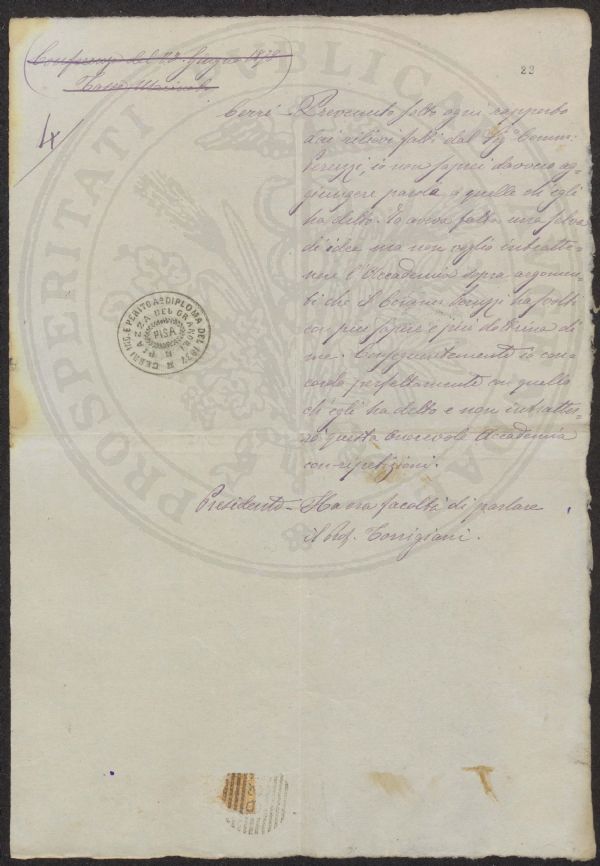 Conferenza del 23 Giugno 1878
23
4
Cerri - Prevenuto sotto ogni rapporto
dai rilievi fatti dal Sig. Comm.
Peruzzi, io non saprei davvero ag-
giungere parola a quelle che egli
ha detto. Io aveva fatto una selva
di idee ma non voglio intratte-
nere l'Accademia sopra argomen-
ti che il Comm. Peruzzi ha svolti
con più sapere e più dottrina di
me. Conseguentemente io con-
cordo perfettamente in quello
che egli ha detto e non intratter-
rò questa Onorevole Accademia
con ripetizioni.
Presidente - Ha ora facoltà di parlare
il Prof. Torrigiani.
CERRI ING. E PERITO Aº DIPLOMA DEL
PISA
PROSPERITATI PUBLICAE